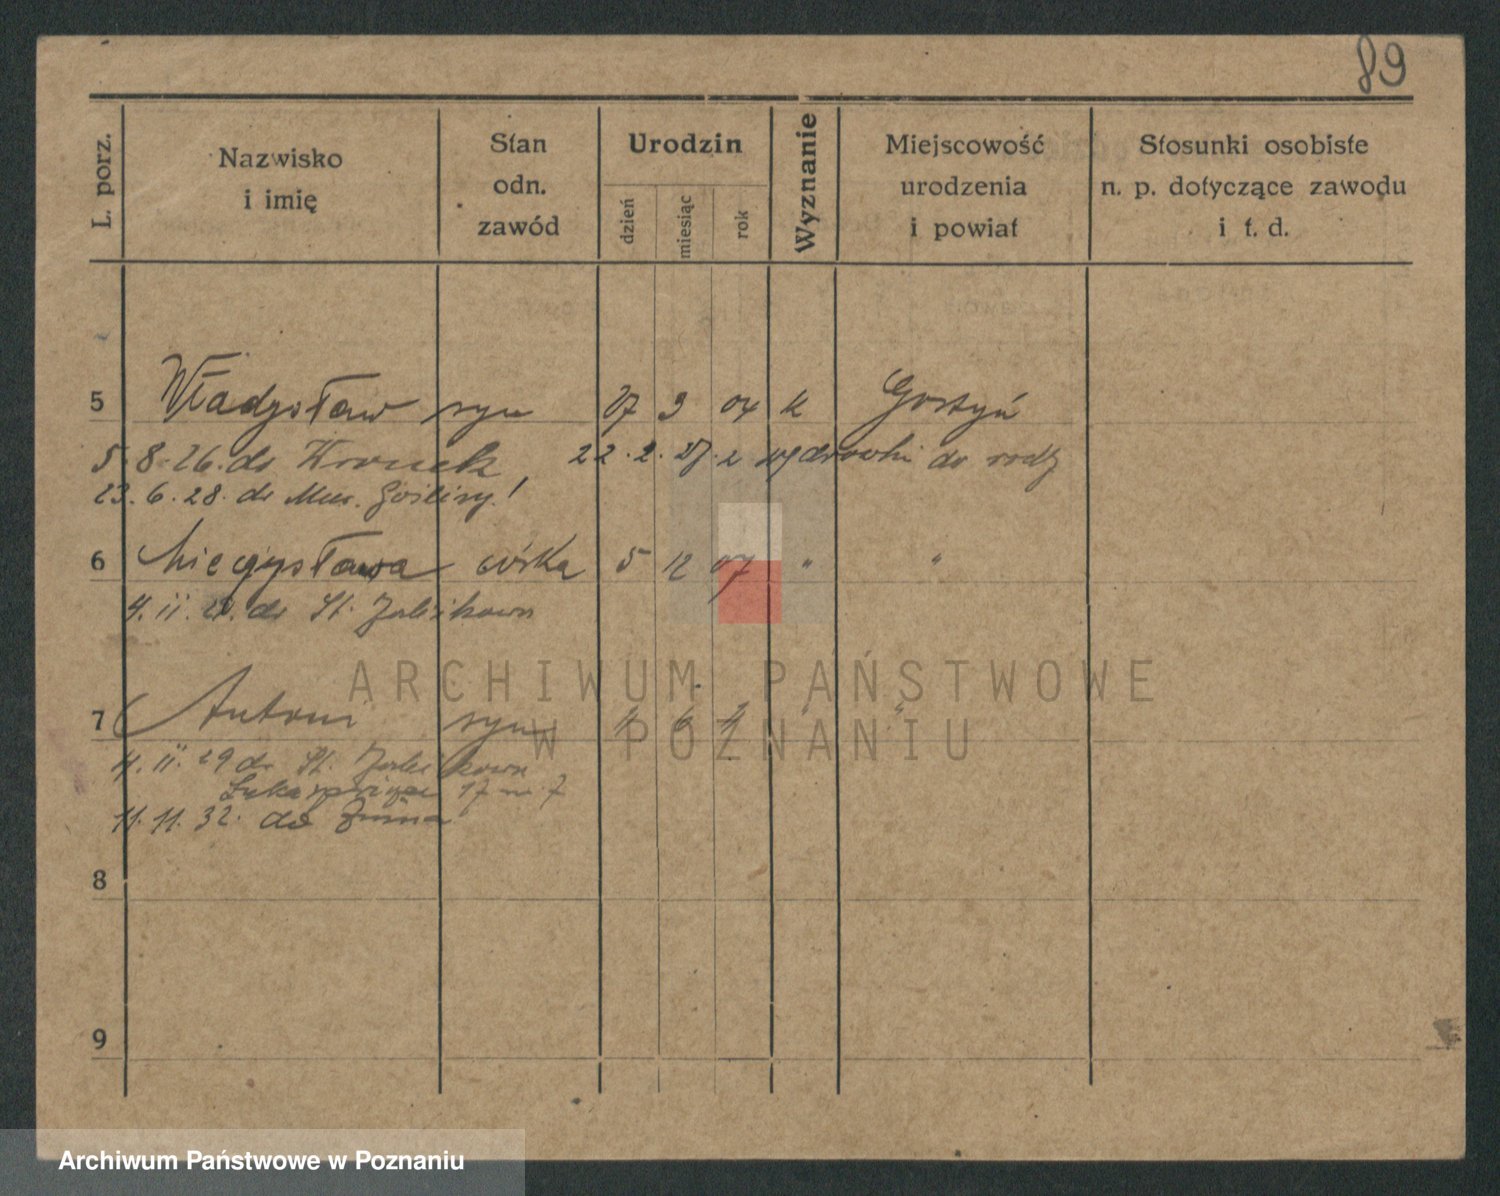 89
L. porz.
Nazwisko
i imię
Stan
odn.
zawód
Urodzin
dzień
miesiąc
rok
Wyznanie
Miejscowość
urodzenia
i powiat
Stosunki osobiste
n. p. dotyczące zawodu
i t. d.
5 Władysław syn 27 9 04 k Gostyń
5.8.26. do 22.2.27. z do
23.6.28. do Mur. Gośliny!
6 Mieczysława córka 5 12 07 " "
4. II. do St.
7 Antoni syn 6 " "
4. II. 29 do St.
17 m 7
11.11.32. do Żnina
8
9
ARCHIWUM PAŃSTWOWE
W POZNANIU
Archiwum Państwowe w Poznaniu